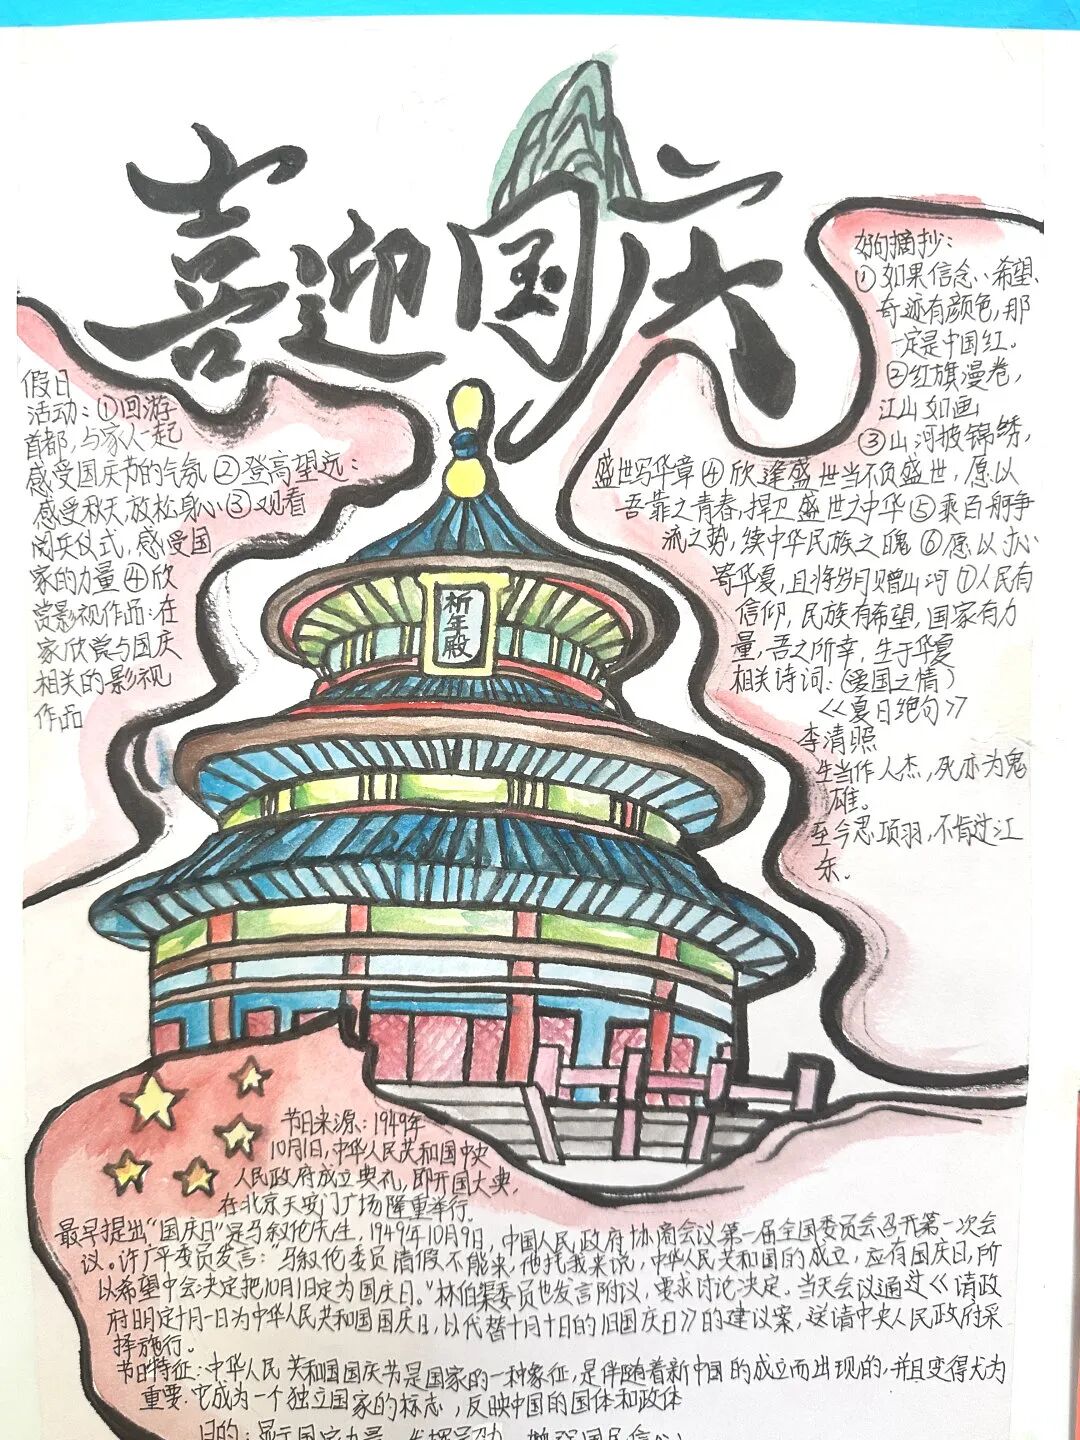 喜迎国庆
祈年殿
假日
活动：①回游
首都，与家人一起
感受国庆节的气氛②登高望远：
感受秋天，放松身心③观看
阅兵仪式，感受国
家的力量④欣
赏影视作品：在
家欣赏与国庆
相关的影视
作品
好句摘抄：
①如果信念、希望、
奇迹有颜色，那
一定是中国红。
②红旗漫卷，
江山如画
③山河披锦绣，
盛世写华章④欣逢盛世当不负盛世，愿以
吾辈之青春，捍卫盛世之中华⑤乘百舸争
流之势，续中华民族之魂⑥愿以
寄华夏，且将岁月赠山河⑦人民有
信仰，民族有希望，国家有力
量，吾之所幸，生于华夏
相关诗词：（爱国之情）
《夏日绝句》
李清照
生当作人杰，死亦为鬼
雄。
至今思项羽，不肯过江
东。
节日来源：1949年
10月1日，中华人民共和国中央
人民政府成立典礼，即开国大典，
在北京天安门广场隆重举行。
最早提出“国庆日”是马叙伦先生，1949年10月9日，中国人民政府协商会议第一届全国委员会召开第一次会
议。许广平委员发言：“马叙伦委员请假不能来，他托我来说，中华人民共和国的成立，应有国庆日，所
以希望中会决定把10月1日定为国庆日。”林伯渠委员也发言附议，要求讨论决定。当天会议通过《请政
府明定十月一日为中华人民共和国国庆日，以代替十月十日的旧国庆日》的建议案，送请中央人民政府采
择施行。
节日特征：中华人民共和国国庆节是国家的一种象征，是伴随着新中国的成立而出现的，并且变得尤为
重要。它成为一个独立国家的标志，反映中国的国体和政体
目的：显示国家力量、